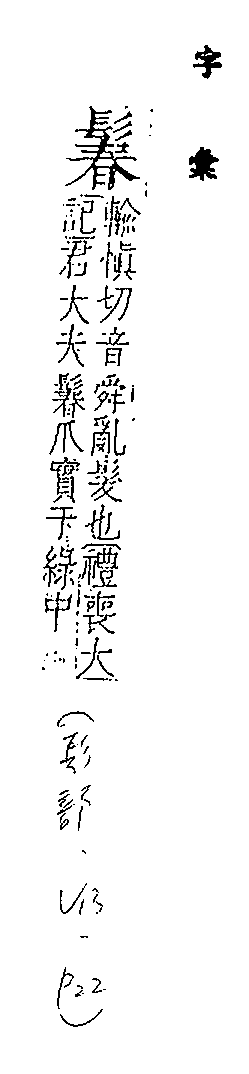 字彙
鬊
輸慎切音舜亂髮也禮喪大
記君大夫鬊爪實于綠中
(髟部、V13-P22)